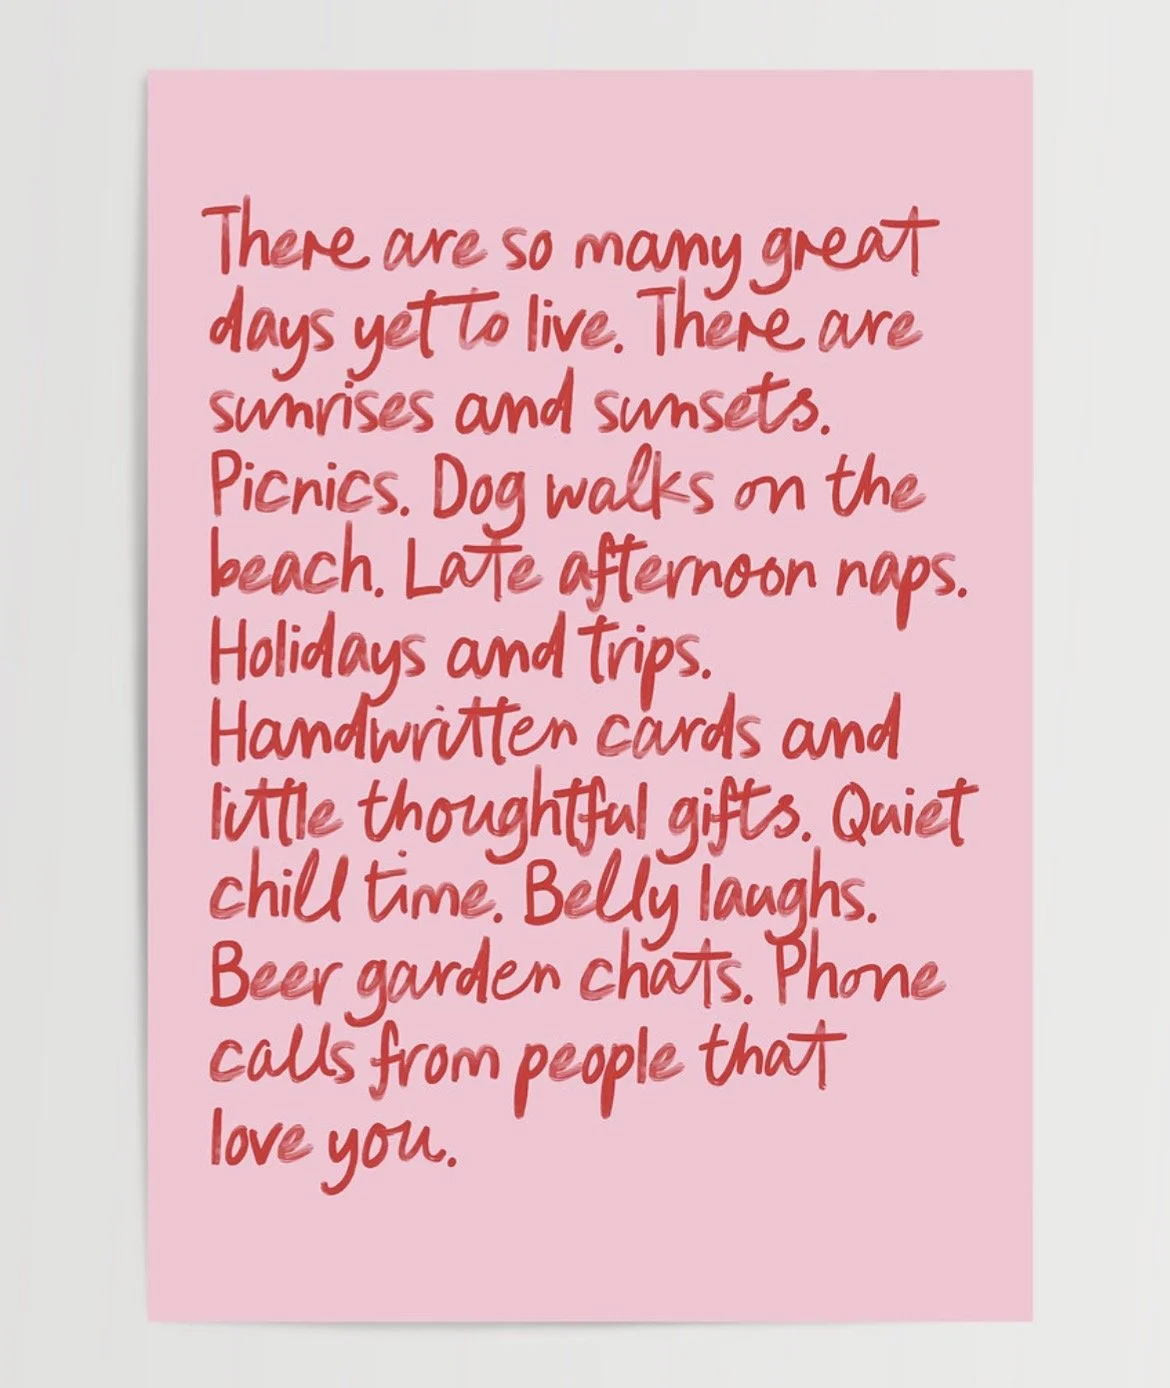 There are so many great
days yet to live. There are
sunrises and sunsets.
Picnics. Dog walks on the
beach. Late afternoon naps.
Holidays and trips.
Handwritten cards and
little thoughtful gifts. Quiet
chill time. Belly laughs.
Beer garden chats. Phone
calls from people that
love you.